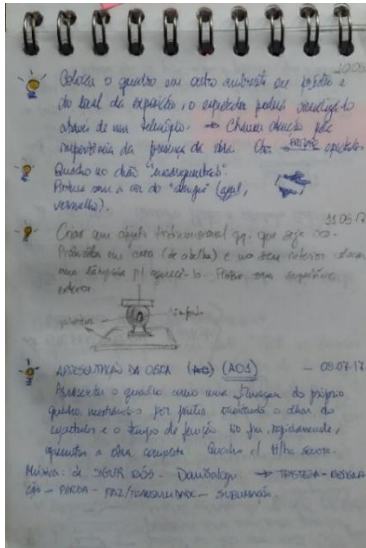 Colocar o quadro em outro ambiente ou prédio e
do local da exposição, o espectador poderá visualizá-lo
através de um telescópio. → Chamar atenção pela
importância da presença da obra. Obra
Quadro no chão "ensanguentado".
Pintura com a cor do "sangue" (azul,
vermelho).
11.05.17
Criar um objeto tridimensional qq. que seja co-
em cera (de abelha) e no seu interior colocar
uma lâmpada p/ aquecê-lo. superfície
lâmpada
APRESENTAÇÃO DA OBRA (A01) — 09.07.17
Apresentar o quadro como uma filmagem do próprio
quadro, mostrando-o por partes, orientando o olhar do
espectador e o tempo de fruição. No fim, rapidamente,
apresentar a obra completa. Quadro c/ trilha sonora.
Música: de SIGUR RÓS - → TRISTEZA -
ção - PERDA - PAZ/TRANQUILIDADE - SUBLIMAÇÃO.